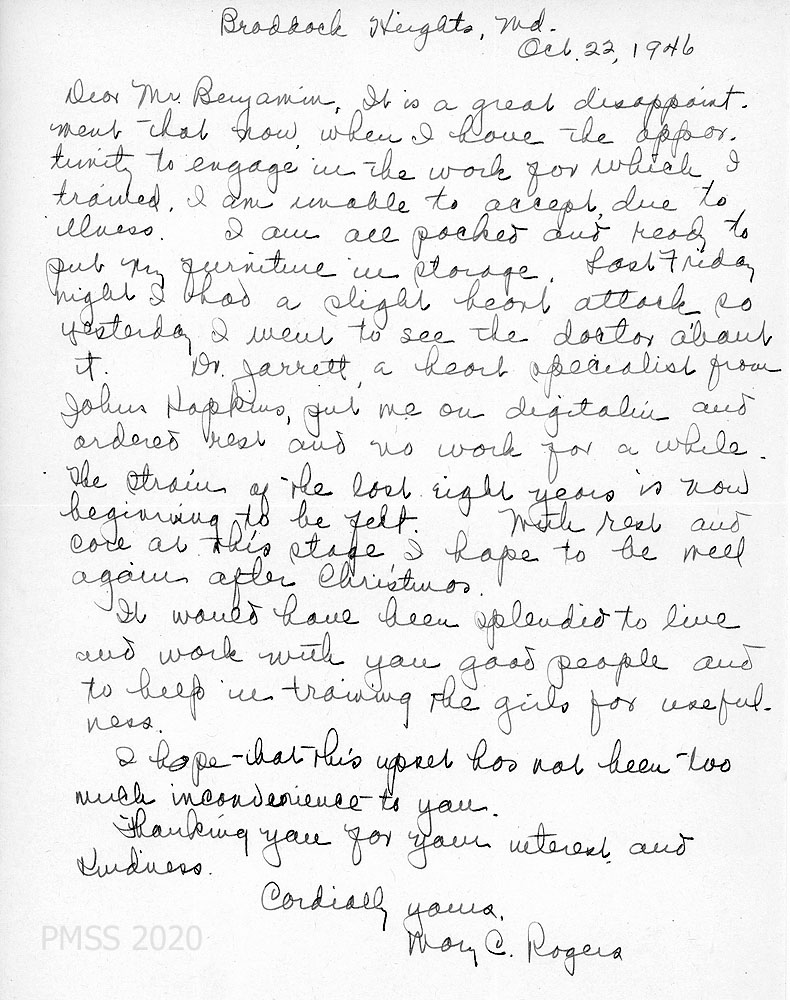 Braddock Heights, Md.
Oct. 22, 1946
Dear Mr. Benjamin, It is a great disappoint-
ment that now, when I have the oppor-
tunity to engage in the work for which I
trained, I am unable to accept, due to
illness. I am all packed and ready to
put my furniture in storage. Last Friday
night I had a slight heart attack so
yesterday I went to see the doctor about
it. Dr. Jarrett, a heart specialist from
Johns Hopkins, put me on digitalin and
ordered rest and no work for a while.
The strain of the last eight years is now
beginning to be felt. With rest and
care at this stage I hope to be well
again after Christmas.
It would have been splendid to live
and work with you good people and
to help in training the girls for useful-
ness.
I hope that this upset has not been too
much inconvenience to you.
Thanking you for your interest and
kindness.
Cordially yours,
Mary C. Rogers
PMSS 2020